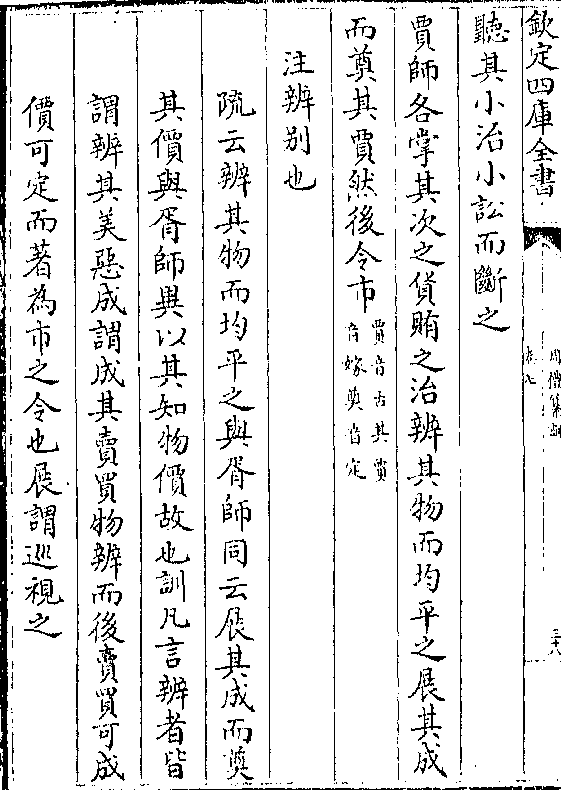 欽定四庫全書
周禮纂訓
卷七
三十八
聽其小治小訟而斷之
賈師各掌其次之貨賄之治辨其物而均平之展其成
而奠其賈然後令市賈音古其賈
音嫁奠音定
注辨别也
疏云辨其物而均平之與胥師同云展其成而奠
其價與胥師異以其知物價故也訓凡言辨者皆
謂辨其美惡成謂成其賣買物辨而後賣買可成
價可定而著為市之令也展謂巡視之